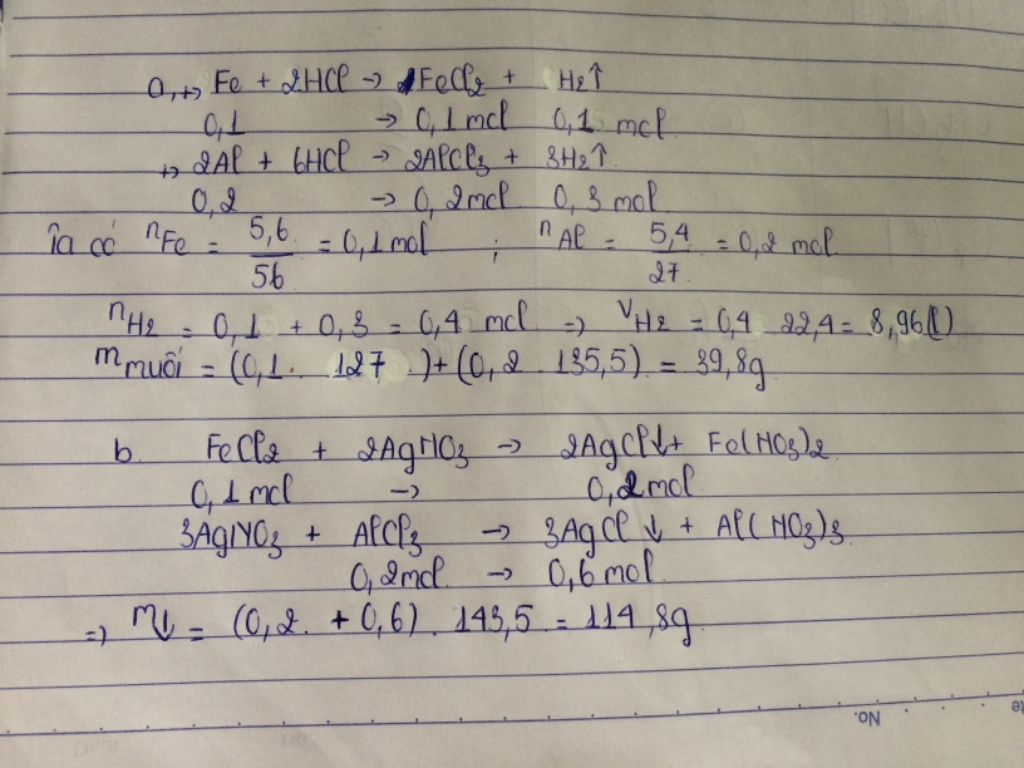 a, +> Fe + 2HCl → FeCl2 + H2↑
0,1 → 0,1 mol 0,1 mol
+> 2Al + 6HCl → 2AlCl3 + 3H2↑
0,2 → 0,2 mol 0,3 mol
Ta có nFe = 5,6/56 = 0,1 mol ; nAl = 5,4/27 = 0,2 mol
nH2 = 0,1 + 0,3 = 0,4 mol => VH2 = 0,4 22,4 = 8,96(l)
m muối = (0,1 . 127 ) + (0,2 . 135,5) = 39,8g
b. FeCl2 + 2AgNO3 → 2AgCl↓ + Fe(NO3)2
0,1 mol → 0,2 mol
3AgNO3 + AlCl3 → 3AgCl ↓ + Al(NO3)3
0,2 mol → 0,6 mol
=> m↓ = (0,2 + 0,6) . 143,5 = 114,8g
No.